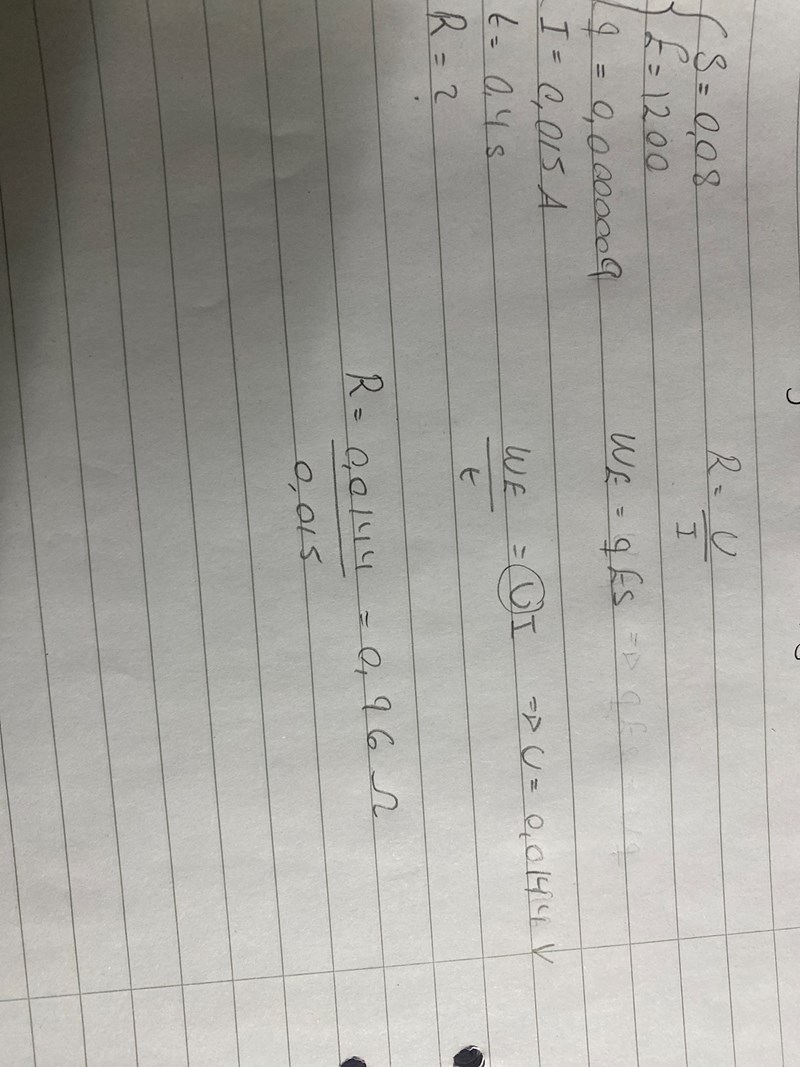 S = 0,08
E = 1200
q = 0,0000009
I = 0,015 A
t = 0,4 s
R = ?
R = U / I
WE = qES => qES = Uq
WE / t = UI => U = 0,0144 V
R = 0,0144 / 0,015 = 0,96 Ω